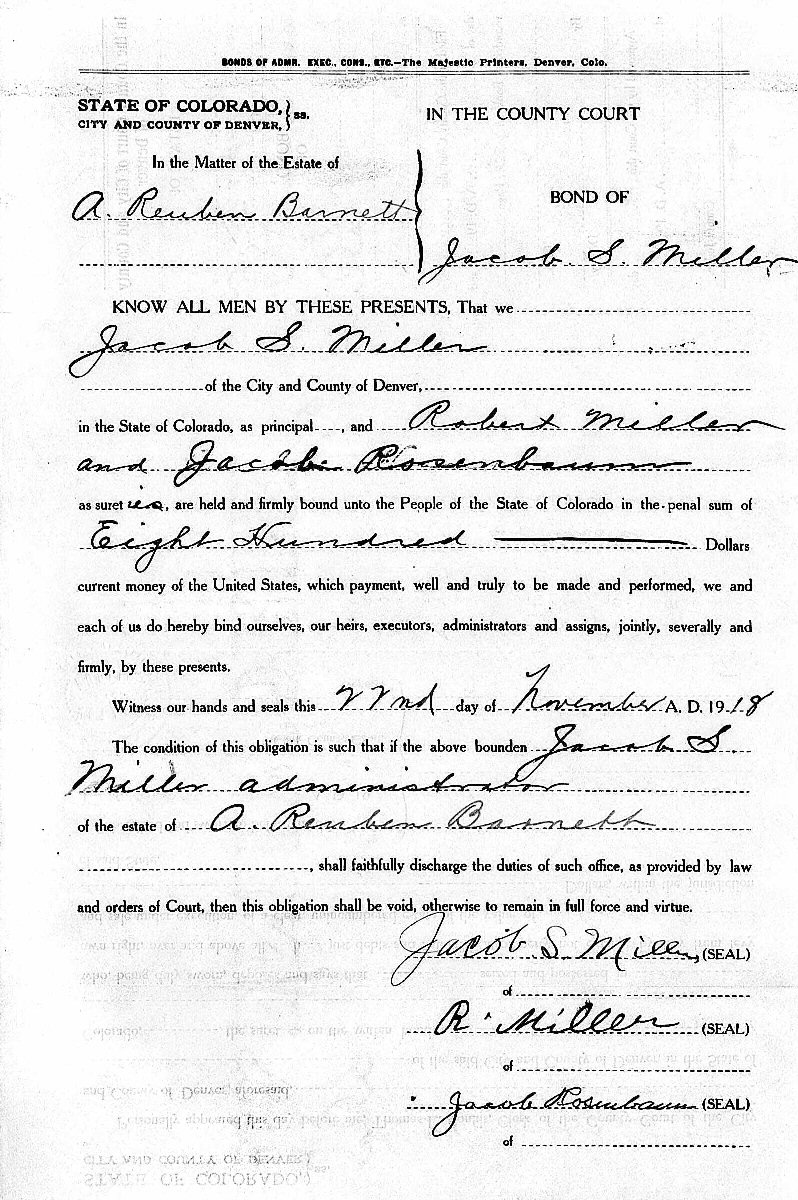 BONDS OF ADMR. EXEC., CONS., ETC.—The Majestic Printers, Denver, Colo.
STATE OF COLORADO,
CITY AND COUNTY OF DENVER, } ss.
IN THE COUNTY COURT
In the Matter of the Estate of
A. Reuben Barnett
BOND OF
Jacob S. Miller
KNOW ALL MEN BY THESE PRESENTS, That we
Jacob S. Miller
of the City and County of Denver,
in the State of Colorado, as principal, and Robert Miller
and Jacob Rosenbaum
as sureties, are held and firmly bound unto the People of the State of Colorado in the penal sum of
Eight Hundred Dollars
current money of the United States, which payment, well and truly to be made and performed, we and
each of us do hereby bind ourselves, our heirs, executors, administrators and assigns, jointly, severally and
firmly, by these presents.
Witness our hands and seals this 22nd day of November A. D. 1918
The condition of this obligation is such that if the above bounden Jacob S.
Miller administrator
of the estate of A. Reuben Barnett
, shall faithfully discharge the duties of such office, as provided by law
and orders of Court, then this obligation shall be void, otherwise to remain in full force and virtue.
Jacob S. Miller (SEAL)
of
R. Miller (SEAL)
of
Jacob Rosenbaum (SEAL)
of